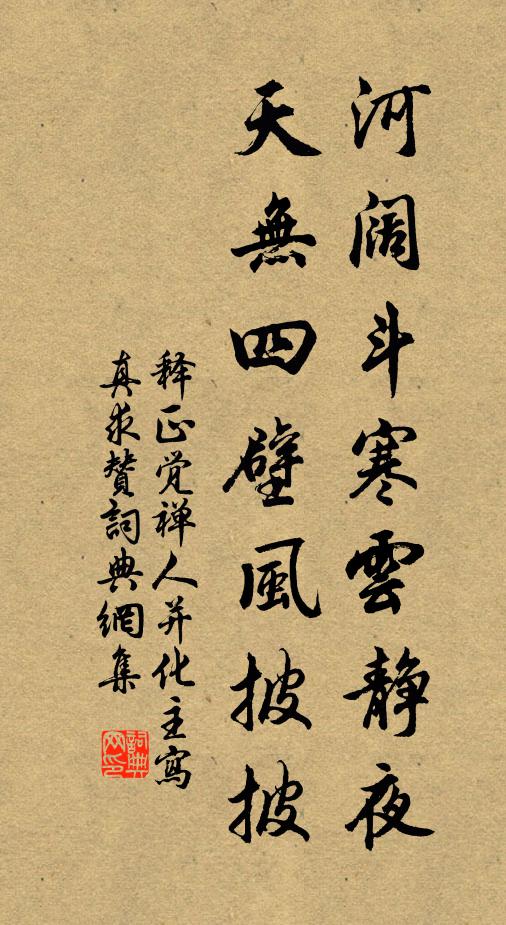 河阔斗寒雲静夜
天無四壁風披披
释正觉禅人并化主寫
真求赞詞典網集
詞典網印